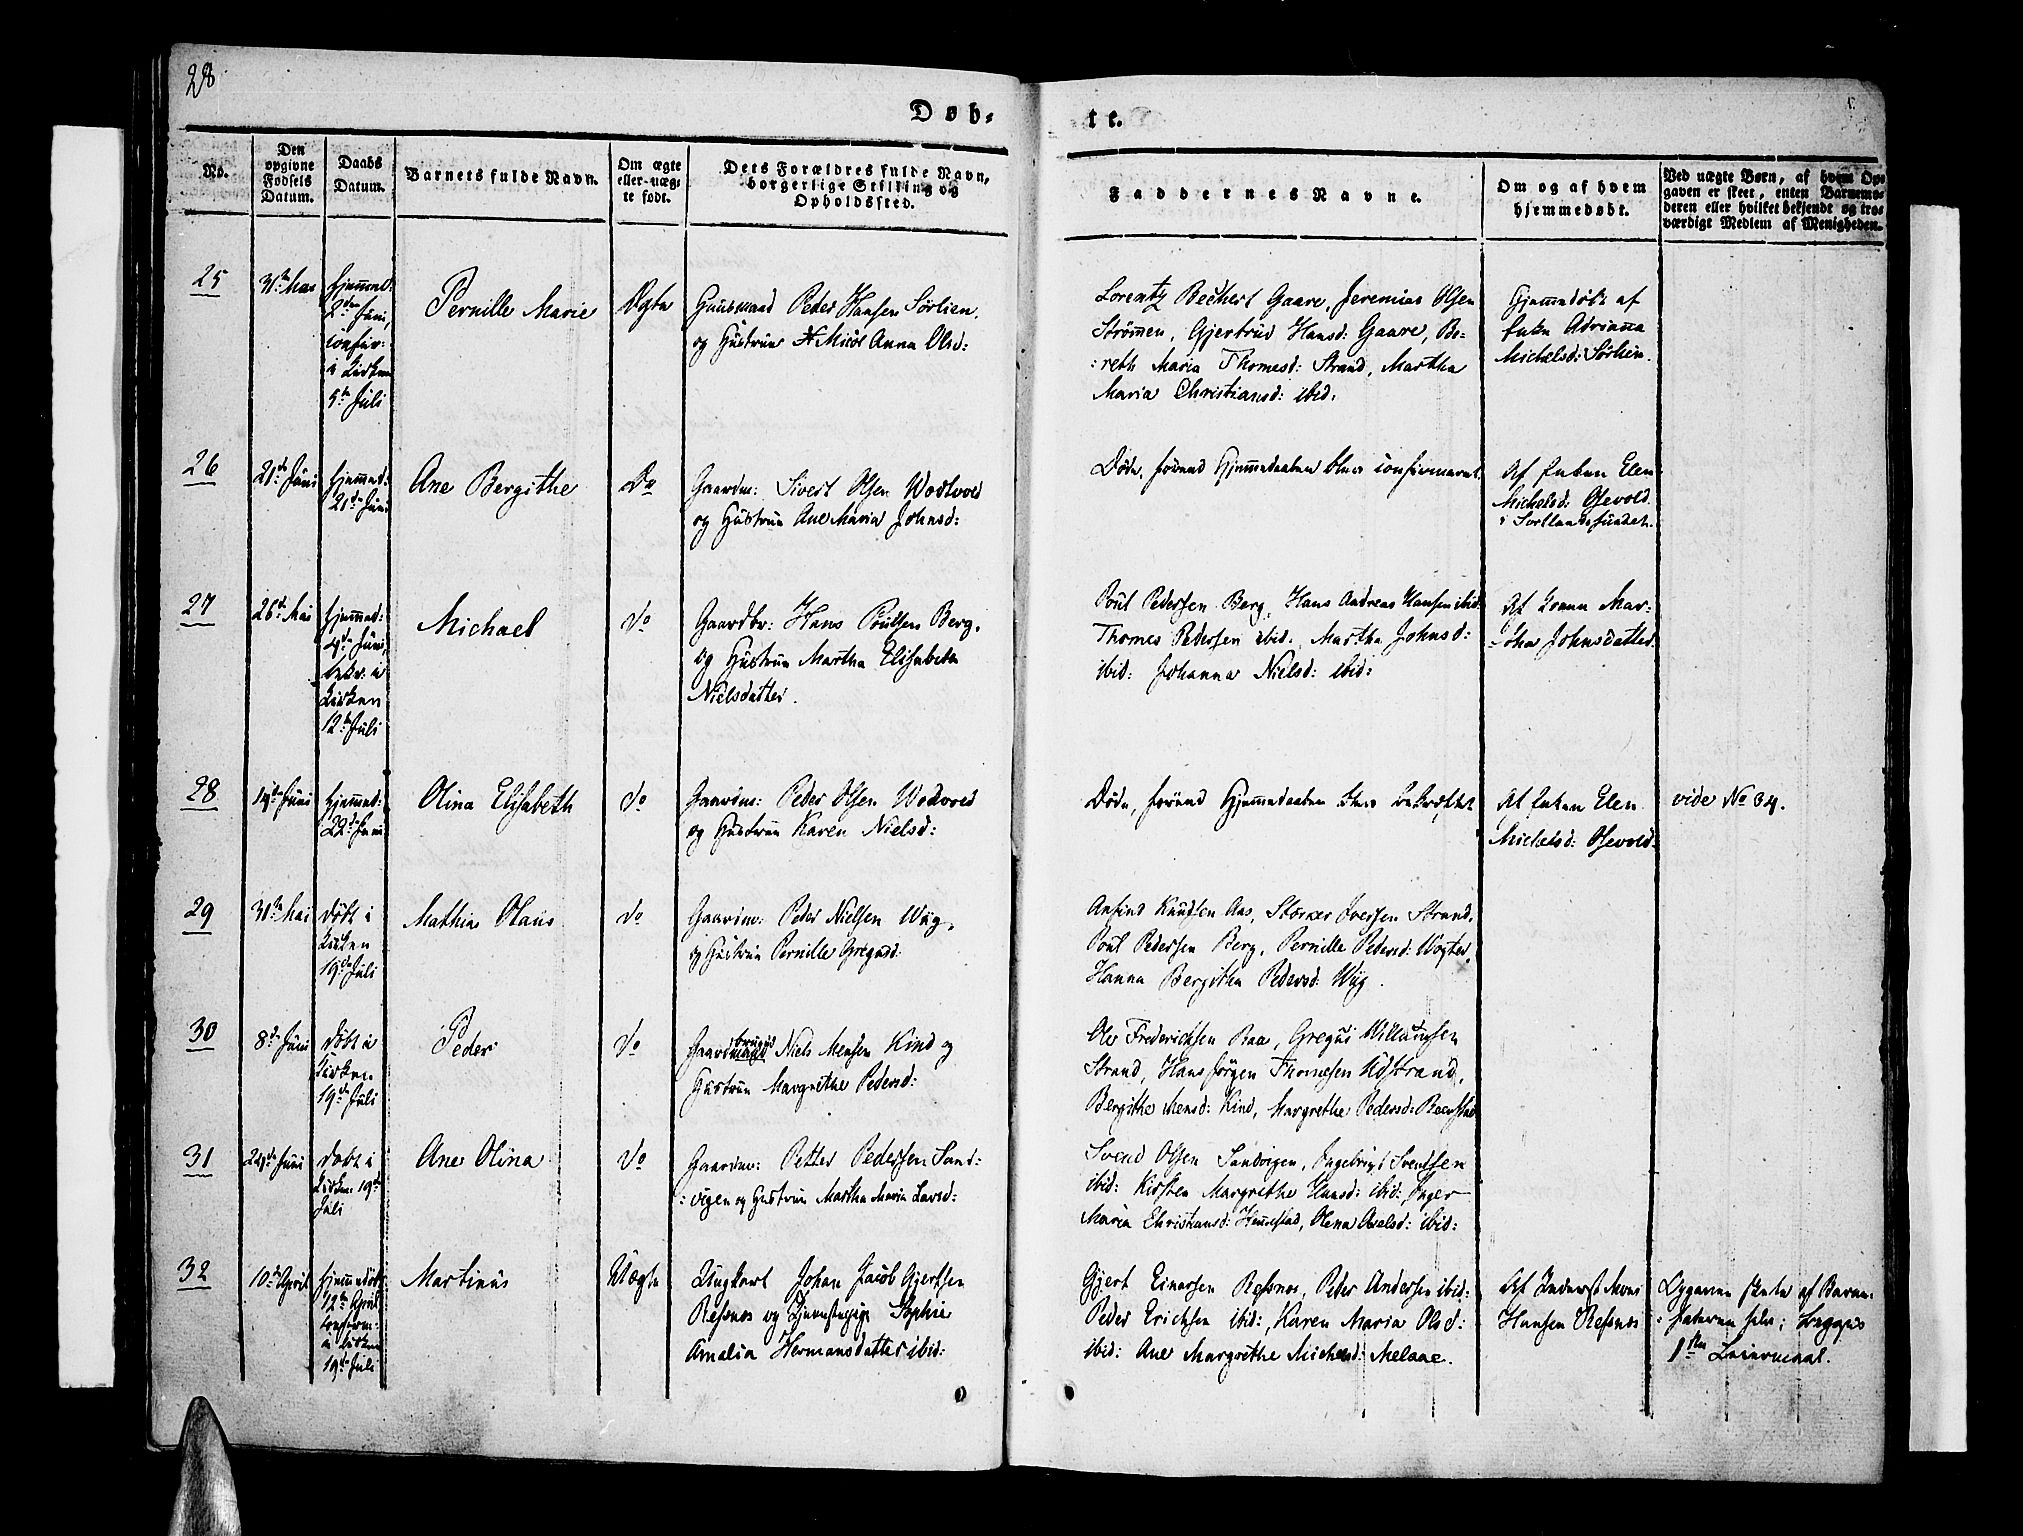 28
Døb-
te.
No.
Den
opgivne
Fødsels
Datum.
Daabs
Datum.
Barnets fulde Navn.
Om ægte
eller uæg-
te født.
Dets Forældres fulde Navn,
borgerlige Stilling og
Opholdssted.
Faddernes Navne.
Om og af hvem
hjemmedøbt.
Ved uægte Børn, af hvem Op-
gaven er skeet, enten Barnemo-
deren eller hvilket bekjendt og tro-
værdigt Medlem af Menigheden.
25
31te Mai
hjemmed:
2den Juni,
confir:
i Kirken
5te Juli
Pernille Marie
Ægte
Huusmand Peder Hansen Sørlien.
og Hustrue Anna Olsd:
Lorentz Bechert Gaare, Jeremias Olsen
Strømen, Gjertrud Hansd: Gaare, Be-
:reth Maria Thomesd: Strand, Martha
Maria Christiansd: ibid.
Hjemmedøbt af
Enken Adrianna
Michelsd: Sørlien.
26
21de Juni
hjemmed:
21de Juni
Ane Bergithe
Do
Gaardm: Sivert Olsen Wodvold
og Hustrue Ane Maria Johnsd:
Døde, førend Hjemmedaaben blev confirmeret.
Af Enken Elen
Michelsd: Osevold
i Sortlandsundet.
27
26de Mai
hjemmed:
4de Juni,
bekr: i
Kirken
12te Juli
Michael
do
Gaardbr: Hans Poulsen Berg.
og Hustrue Martha Elisabeth
Nielsdatter.
Poul Pedersen Berg, Hans Andreas Hansen ibid
Thomes Pedersen ibid. Martha Johnsd:
ibid: Johanna Nielsd: ibid:
Af Konen Mar-
-tha Johnsdatter
28
14de Juni
hjemmed:
22de Juni
Olina Elisabeth
do
Gaardm: Peder Olsen Wodvold
og Hustrue Karen Nielsd:
Døde, førend Hjemmedaaben blev bekræftet
Af Enken Elen
Michelsd: Osevold:
vide No 34.
29
31te Mai
døbt i
Kirken
19de Juli
Mathias Olaus
do
Gaardm: Peder Nielsen Wiig,
og Hustrue Pernille Gregusd:
Anfind Knudsen Aas, Storker Iversen Strand,
Poul Pedersen Berg, Pernille Pedersd: Wogter,
Hanna Bergitha Pedersd: Wiig.
30
8de Juni
døbt i
Kirken
19de Juli
Peder
do
Gaardmand Niels Mensen Kind og
Hustrue Margrethe Pedersd:
Ole Frederichsen Baa, Gregus Willadsen
Strand, Hans Jørgen Thomesen Kidstrand,
Bergithe Mensd: Kind, Margrethe Pedersd:
31
24de Juni
døbt i
Kirken 19de
Juli
Ane Olina
do
Gaardm: Petter Pedersen Sand:
:vigen og Hustrue Martha Maria Larsd:
Svend Olsen Sandvigen, Ingebrigt Svendsen
ibid: Kirsten Margrethe Hansd: ibid: Inger
Maria Christiansd: Hennestad, Olena Axelsd: ibid:
32
10de April
hjemmedøbt
12te April
confirm:
i Kirken
19de Juli
Martinus
Uægte
Ungkarl Johan Jacob Gjertsen
Refsnes og Sophie
Amalia Hermansdatter ibid:
Gjert Einersen Refsnes, Peder Andersen ibid:
Peder Erichsen ibid:, Karen Maria Olsd:
ibid: Ane Margrethe Michelsd: Melaae.
Hansen Refsnes
Opgaven skete af Barne-
:faderen selv; Begges
1ste Leiermaal.